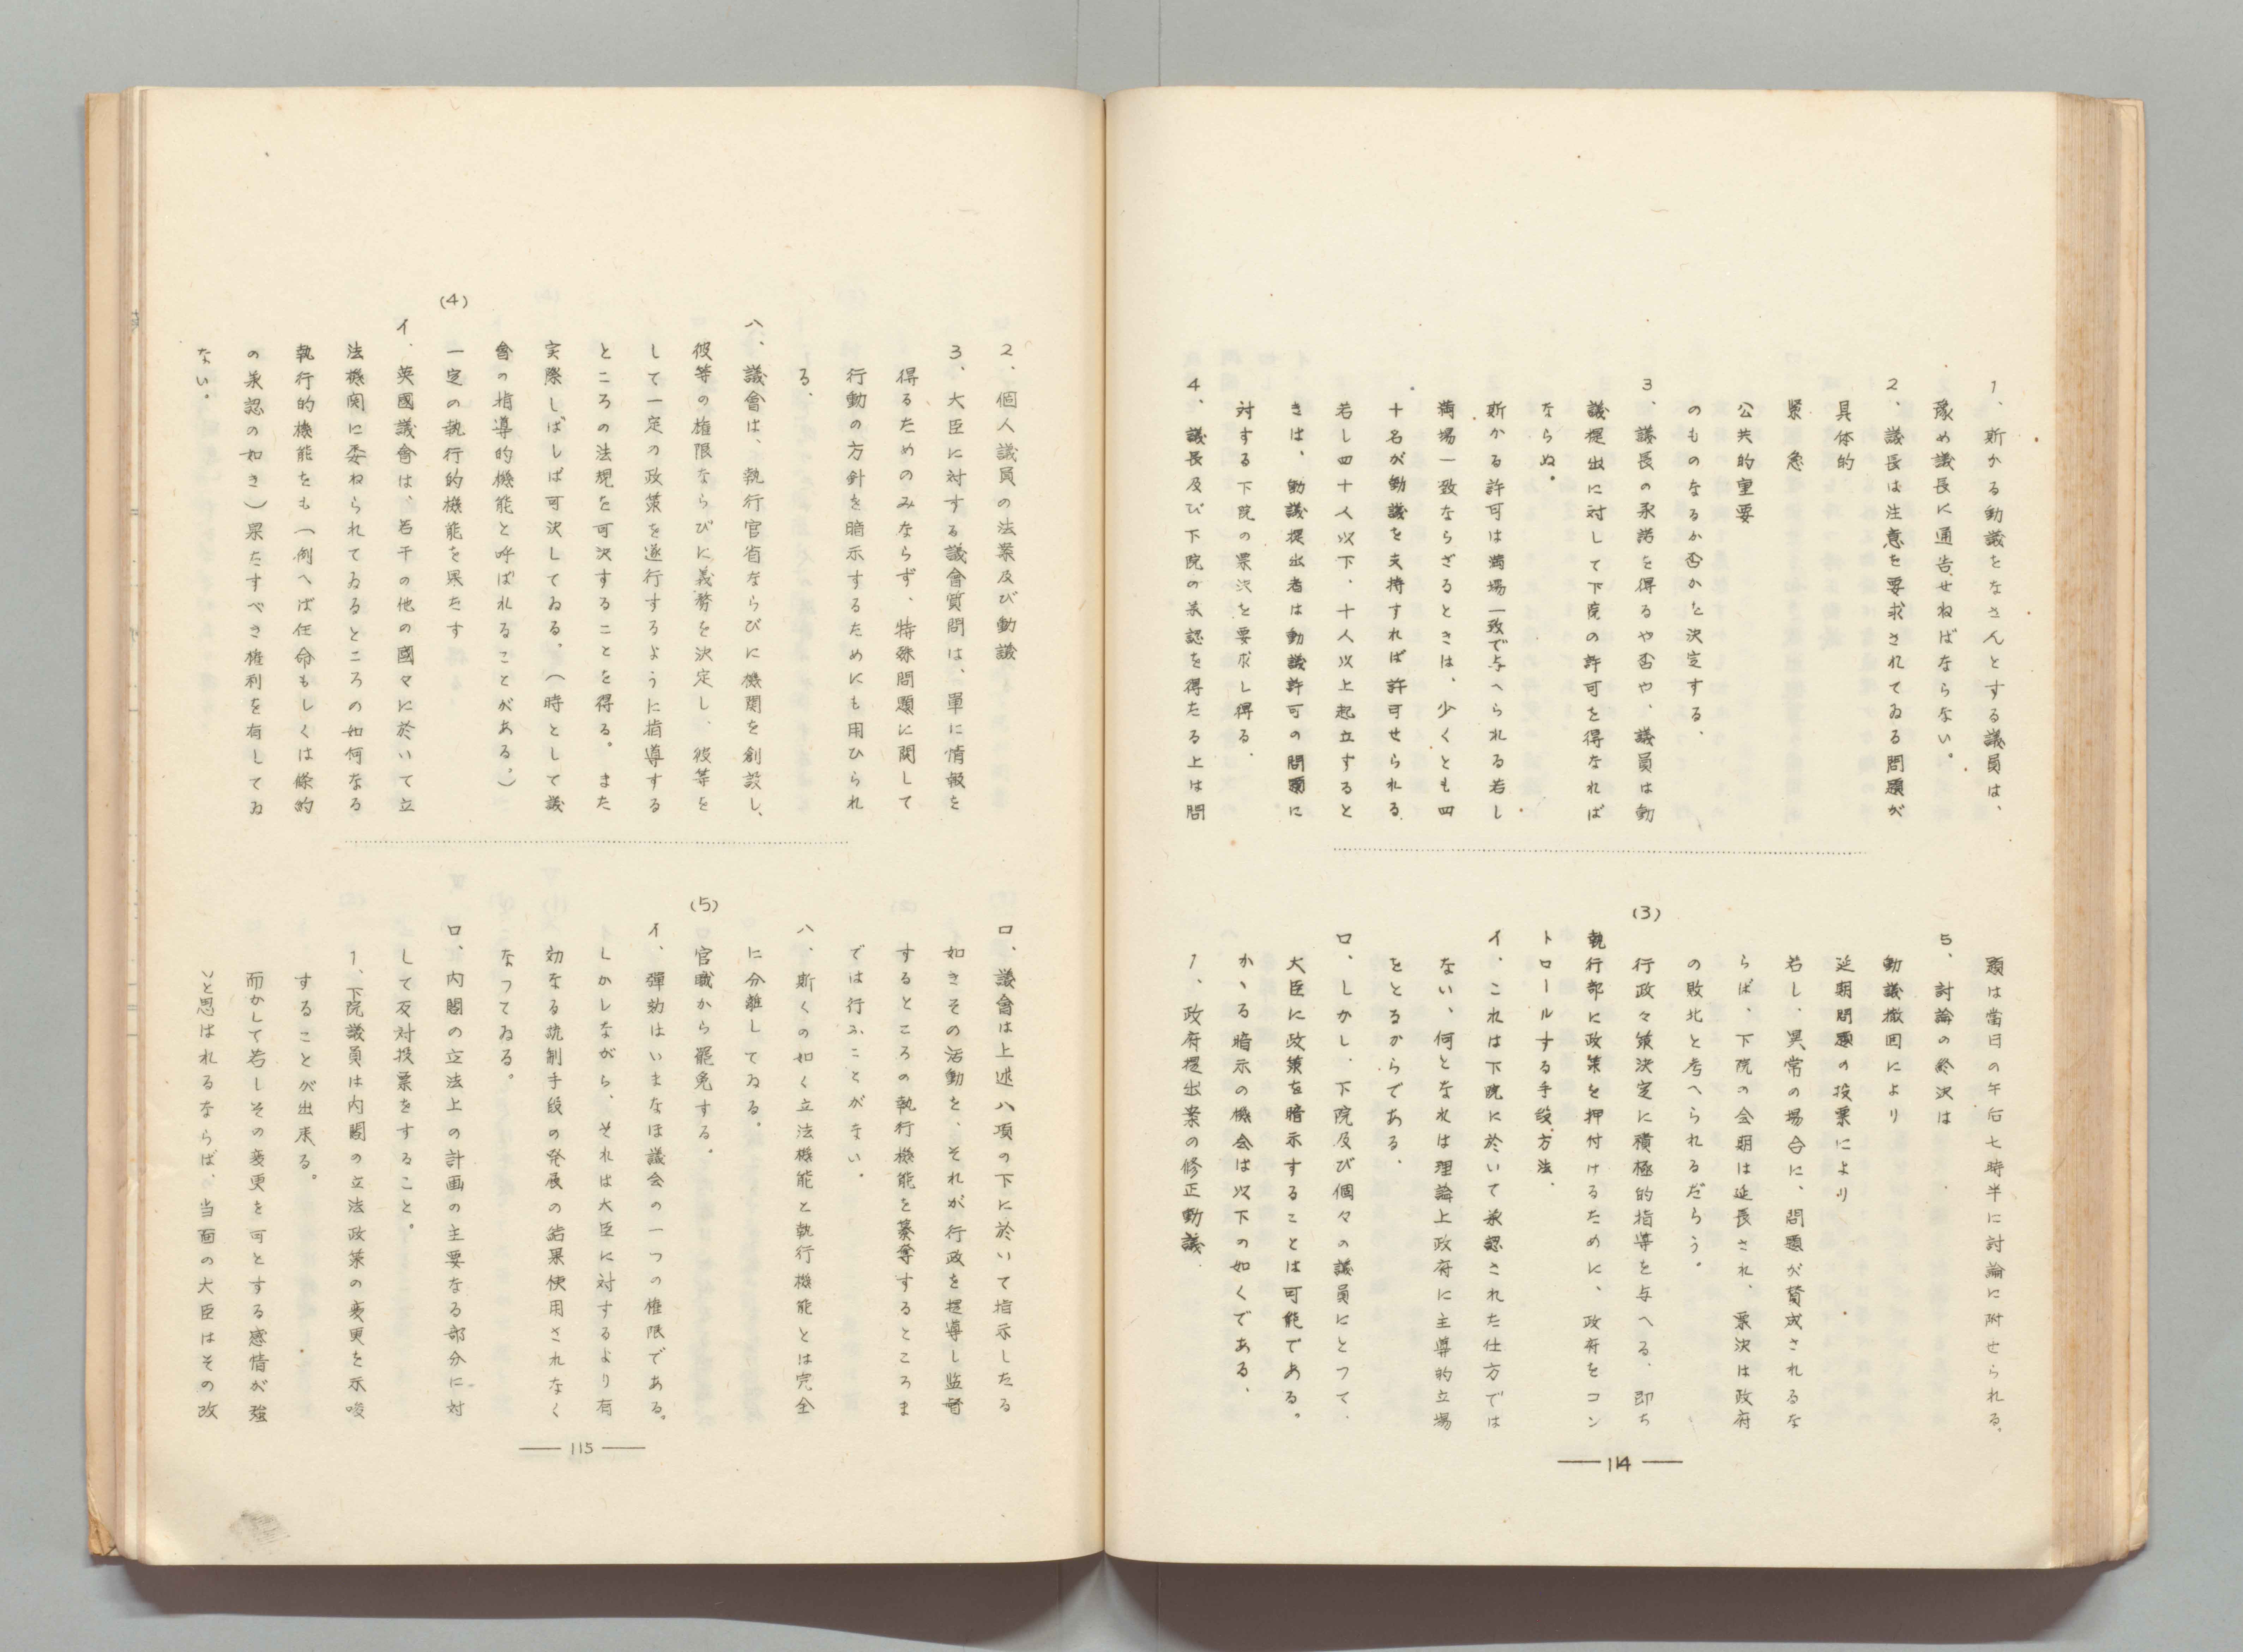 1、斯かる動議をなさんとする議員は、
豫め議長に通告せねばならない。
2、議長は注意を要求されてゐる問題が
具体的
緊急
公共的重要
のものなるか否かを決定する、
3、議長の承諾を得るや否や、議員は動
議提出に対して下院の許可を得なれば
ならぬ。
斯かる許可は満場一致で与へられる若し
満場一致ならざるときは、少くとも四
十名が動議を支持すれば許可せられる、
若し四十人以下、十人以上起立すると
きは、動議提出者は動議許可の問題に
対する下院の票決を要求し得る、
4、議長及び下院の承認を得たる上は問
題は當日の午后七時半に討論に附せられる。
5、討論の終決は
動議撤回により
延期問題の投票により
若し、異常の場合に、問題が賛成されるな
らば、下院の会期は延長され、票決は政府
の敗北と考へられるだらう。
(3)
行政々策決定に積極的指導を与へる、即ち
執行部に政策を押付けるために、政府をコン
トロールする手段方法、
イ、これは下院に於いて承認された仕方では
ない、何となれは理論上政府に主導的立場
をとるからである、
ロ、しかし、下院及び個々の議員にとつて、
大臣に政策を暗示することは可能である。
かゝる暗示の機会は以下の如くである、
1、政府提出案の修正動議、
— 114 —
2、個人議員の法案及び動議
3、大臣に対する議會質問は、單に情報を
得るためのみならず、特殊問題に関して
行動の方針を暗示するためにも用ひられ
る、
ハ、議會は、執行官省ならびに機関を創設し、
彼等の権限ならびに義務を決定し、彼等を
して一定の政策を遂行するように指導する
ところの法規を可決することを得る。また
実際しばしば可決してゐる。(時として議
會の指導的機能と呼ばれることがある。)
(4)
一定の執行的機能を果たす
イ、英國議會は、若干の他の國々に於いて立
法機関に委ねられてゐるところの如何なる
執行的機能をも(例へば任命もしくは條約
の承認の如き)果たすべき権利を有してゐ
ない。
ロ、議會は上述ハ項の下に於いて指示したる
如きその活動を、それが行政を提導し監督
するところの執行機能を簒奪するところま
では行ふことがない。
ハ、斯くの如く立法機能と執行機能とは完全
に分離してゐる。
(5)
官職から罷免する。
イ、彈劾はいまなほ議会の一つの権限である。
しかしながら、それは大臣に対するより有
効なる統制手段の発展の結果使用されなく
なつてゐる。
ロ、内閣の立法上の計画の主要なる部分に対
して反対投票をすること。
1、下院議員は内閣の立法政策の変更を示唆
することが出来る。
而かして若しその変更を可とする感情が強
いと思はれるならば、当面の大臣はその改
— 115 —